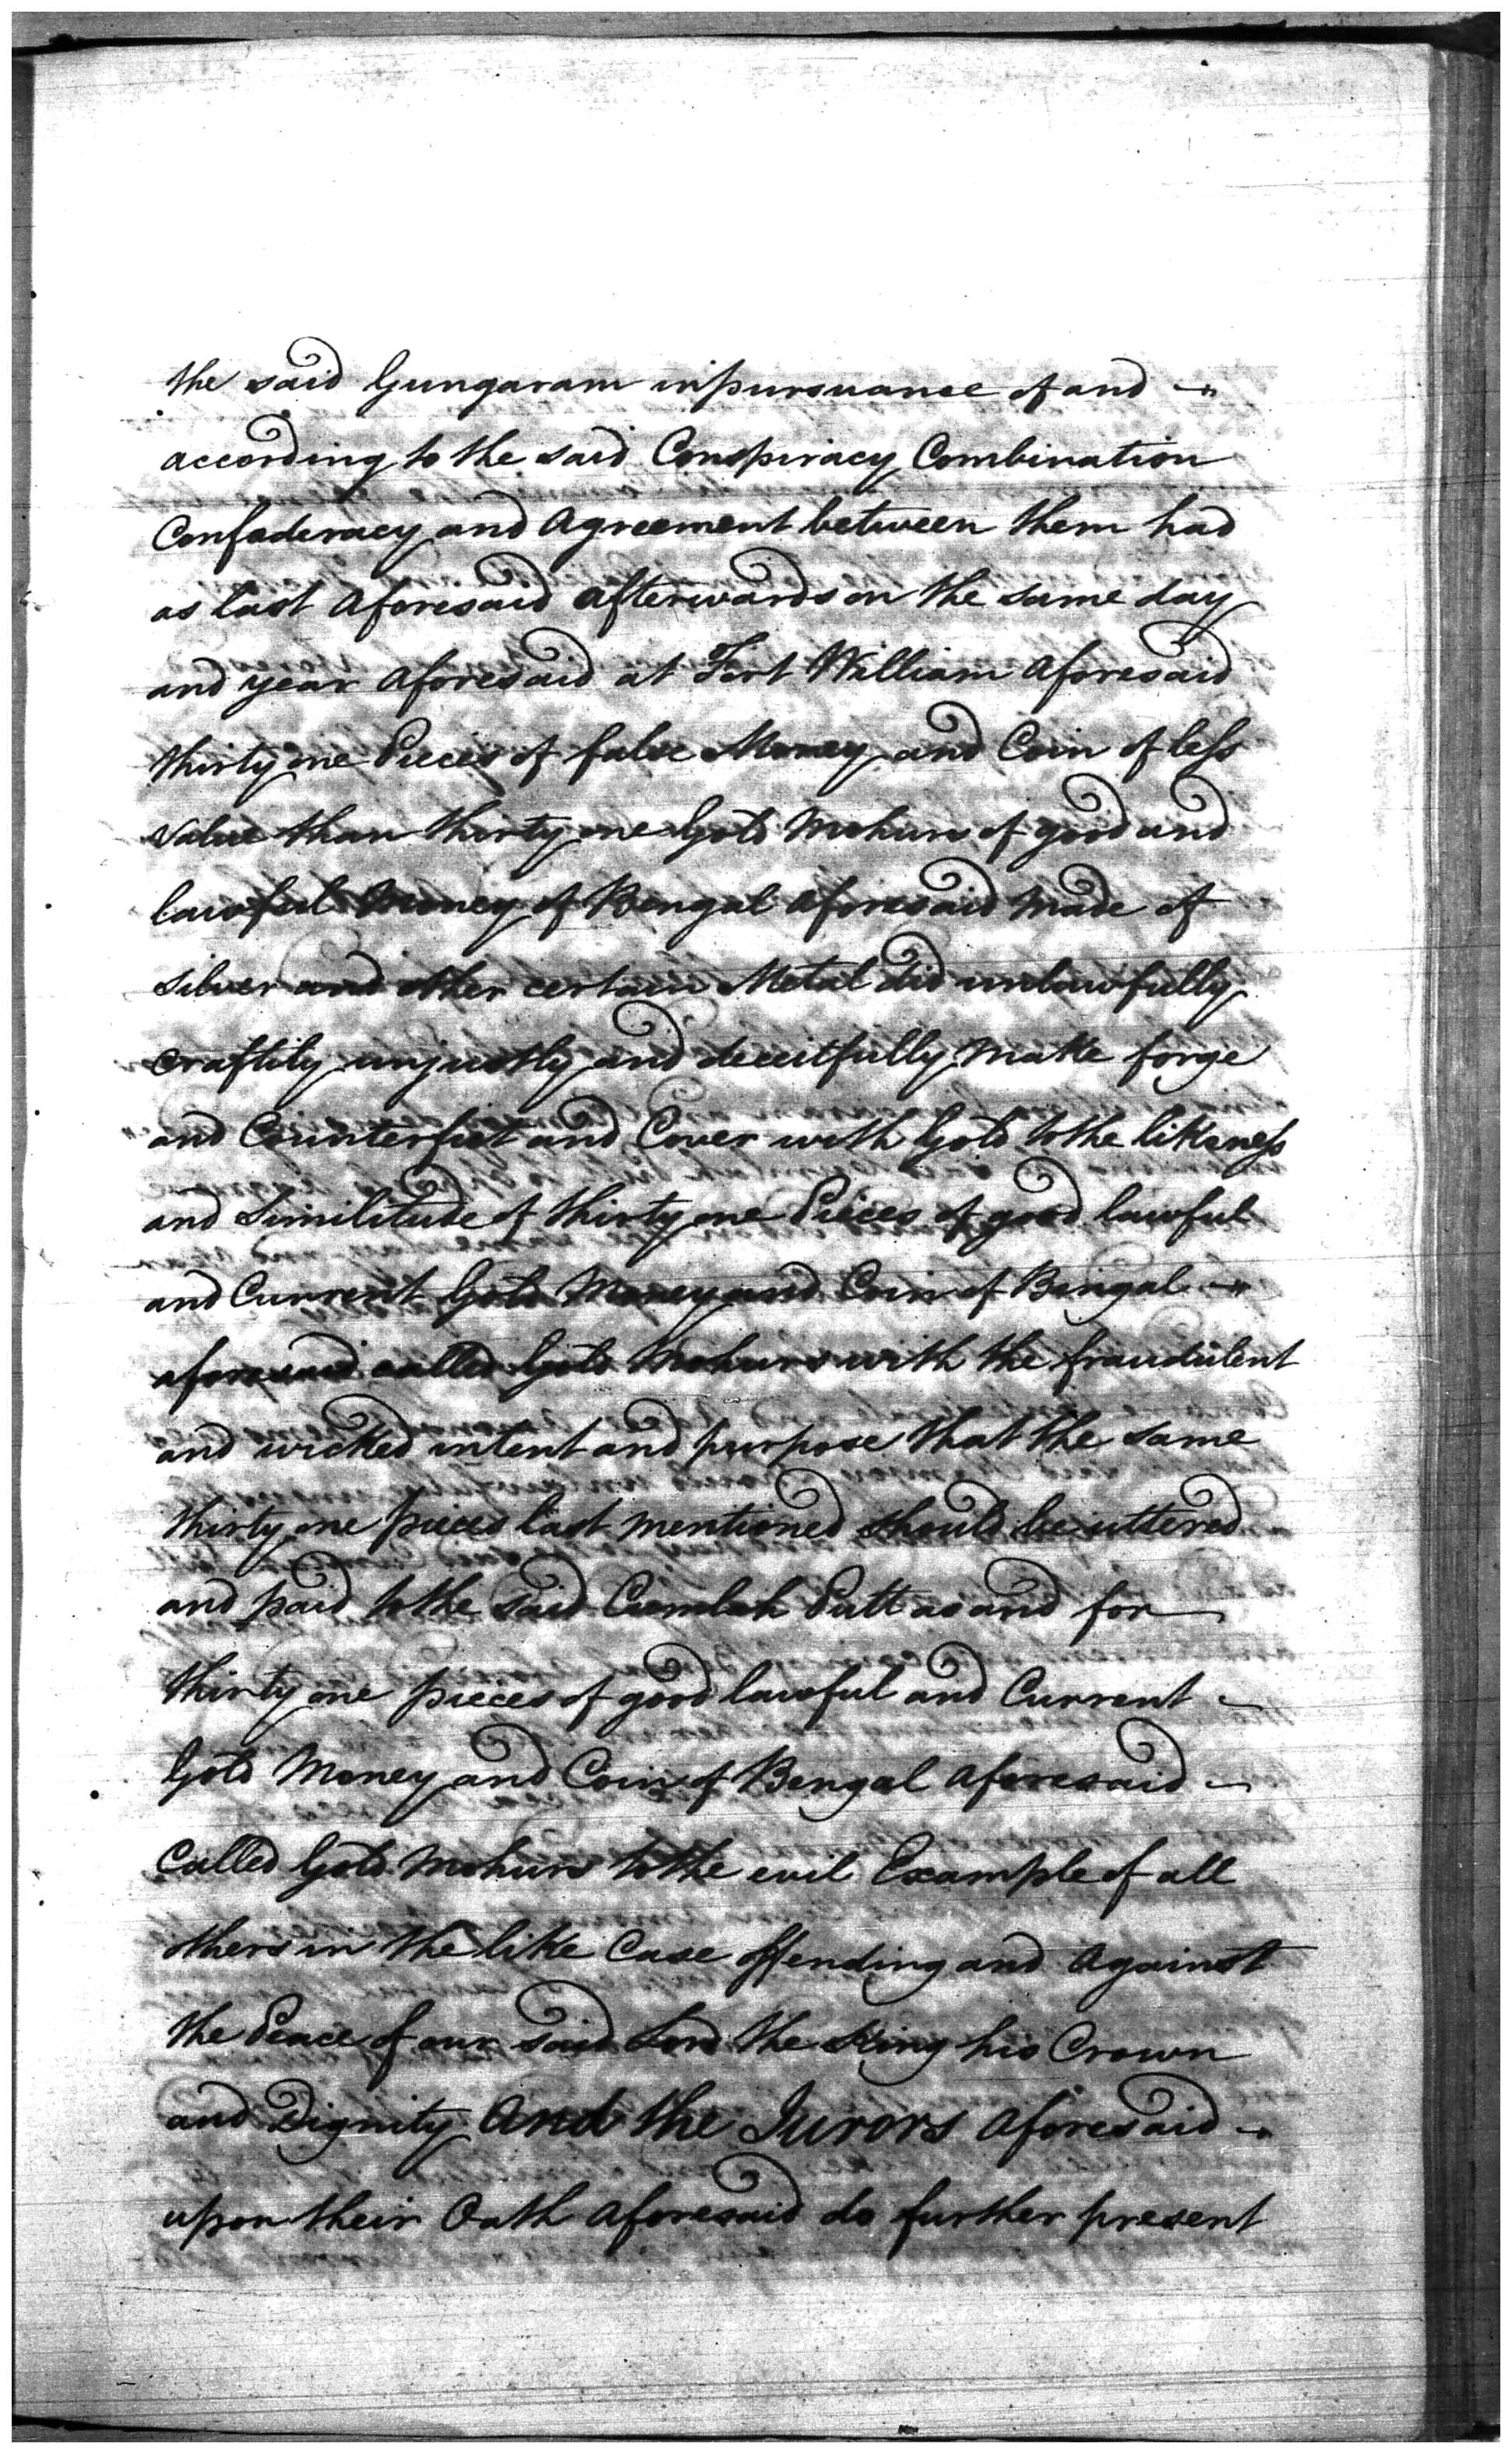 the said Gungaram in pursuance of and
according to the said Conspiracy Combination
Confederacy and Agreement between them had
as last aforesaid afterwards on the same day
and year aforesaid at Fort William aforesaid
thirty one Pieces of false Money and Coin of less
value than thirty one Gold Mohurs of good and
lawful Money of Bengal aforesaid made of
silver and other certain Metal did unlawfully
craftily unjustly and deceitfully make forge
and Counterfeit and Cover with Gold to the likeness
and Similitude of thirty one Pieces of good lawful
and Current Gold Money and Coin of Bengal
aforesaid called Gold Mohurs with the fraudulent
and wicked intent and purpose that the same
thirty one pieces last mentioned should be uttered
and paid to the said Putt as and for
thirty one pieces of good lawful and Current
Gold Money and Coin of Bengal aforesaid
Called Gold Mohurs to the evil Example of all
others in the like Case offending and Against
the Peace of our said Lord the King his Crown
and Dignity And the Jurors aforesaid
upon their Oath aforesaid do further present